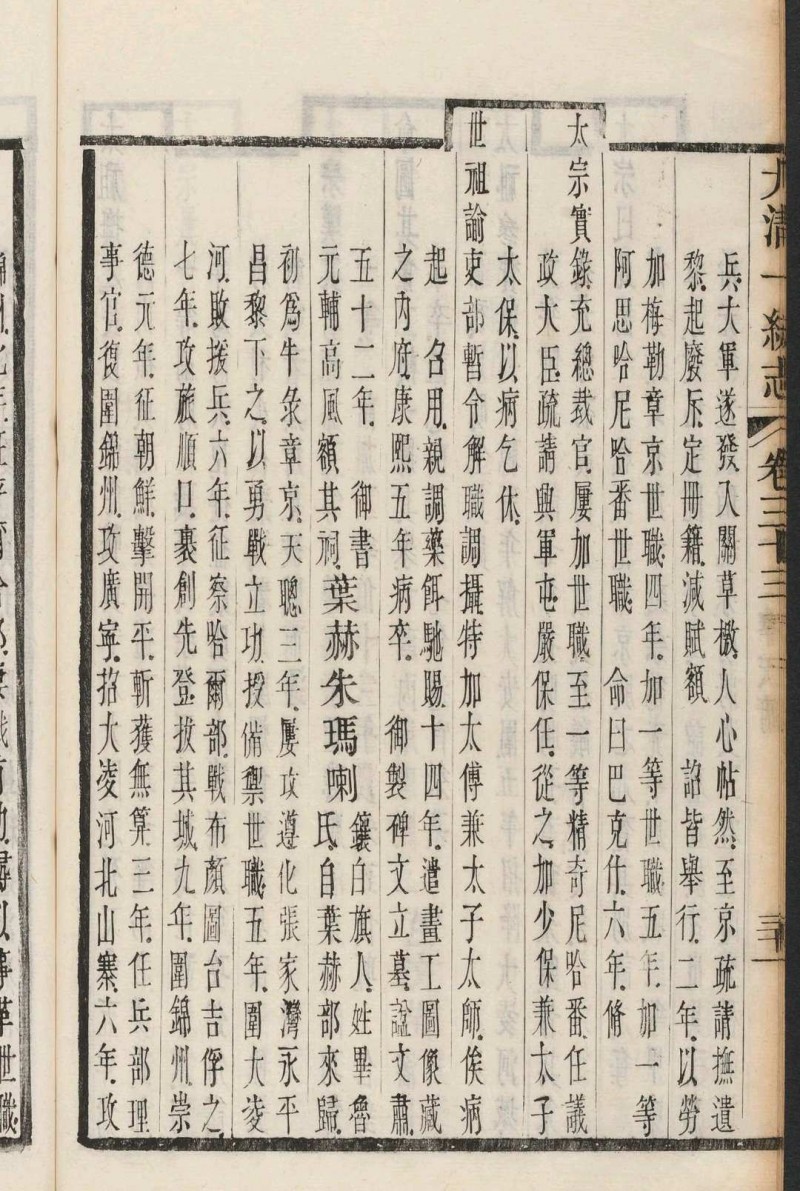 大清一統志 卷三十三 三十一
兵大軍遂發入關草檄人心帖然至京疏請撫遺
黎起廢斥定冊籍減賦額 詔皆舉行二年以勞
加梅勒章京世職四年加一等世職五年加一等
阿思哈尼哈番世職 命曰巴克什六年脩
太宗實錄充總裁官屢加世職至一等精奇尼哈番任議
政大臣疏請興軍屯嚴保任從之加少保兼太子
太保以病乞休
世祖諭吏部暫令解職調攝特加太傅兼太子太師俟病
起 名用親調藥餌馳賜十四年遣畫工圖像藏
之內府康熙五年病卒 御製碑文立墓諡文肅
五十二年 御書
元輔高風額其祠葉赫朱瑪喇鑲白旗人姓畢魯
氏自葉赫部來歸
初為牛彔章京天聰三年屢攻遵化張家灣永平
昌黎下之以勇戰立功授備禦世職五年圍大凌
河敗援兵六年征察哈爾部戰布顏圖台吉俘之
七年攻旅順口裹創先登拔其城九年圍錦州崇
德元年征朝鮮擊開平斬獲無算三年任兵部理
事官復圍錦州攻廣寧招大凌河北山寨六年攻